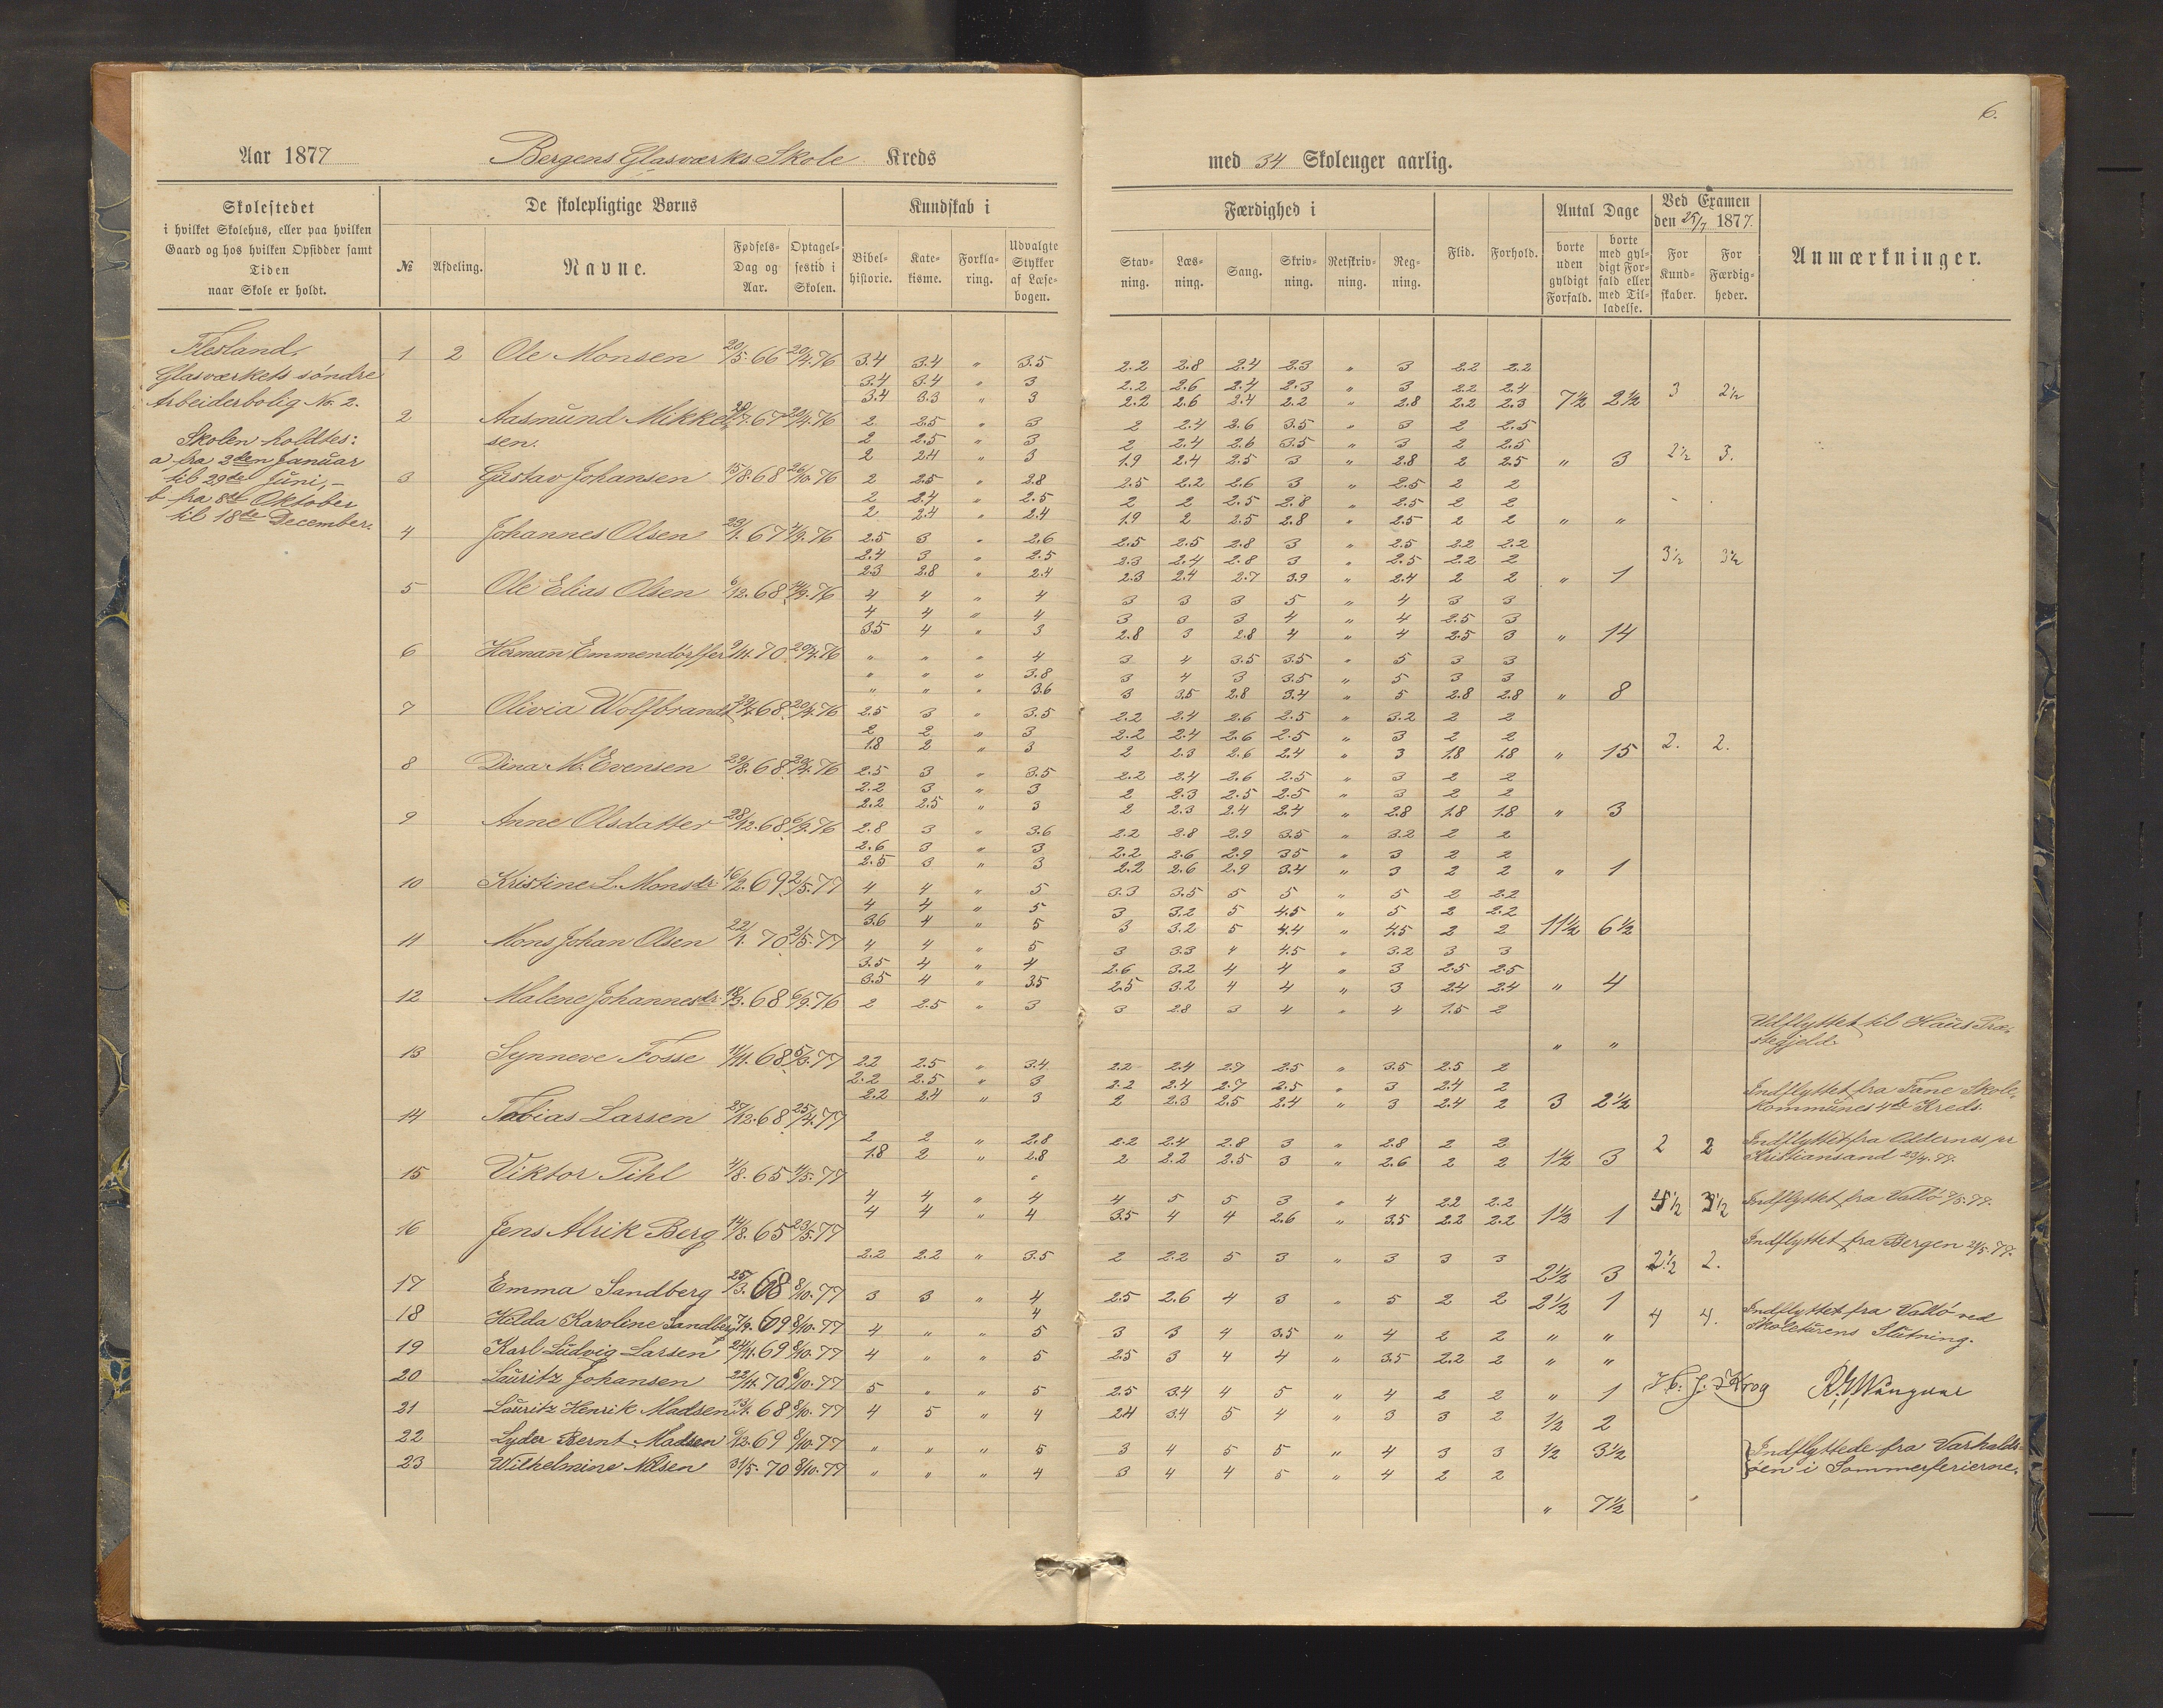 6.
Aar 1877 Bergens Glasværks Skole Kreds med 34 Skoleuger aarlig.
Skolestedet
i hvilket Skolehus, eller paa hvilken
Gaard og hos hvilken Opsidder samt
Tiden
naar Skole er holdt.
De skolepligtige Børns
№ Afdeling. Navne. Fødsels-Dag og Aar. Optagel-sestid i Skolen.
Kundskab i
Bibel-historie. Kate-kisme. Forkla-ring. Udvalgte Stykker af Læse-bogen.
Færdighed i
Stav-ning. Læs-ning. Sang. Skriv-ning. Retskriv-ning. Reg-ning.
Flid. Forhold.
Antal Dage
borte uden gyldigt Forfald. borte med gyl-digt For-fald eller med Til-ladelse.
Ved Examen
den 25/7 1877.
For Kund-skaber. For Færdig-heder.
Anmærkninger.
Flesland,
Glasværkets söndre
Arbeiderbolig No. 2.
Skolen holdtes:
a fra 2den Januar
til 29de Juni, –
b fra 8de Oktober
til 18de December.
1 2 Ole Monsen 20/5. 66 20/4. 76 3.4 3.4 " 3.5 2.2 2.8 2.4 2.3 " 3 2.2 2.2
3.4 3.4 " 3 2.2 2.6 2.4 2.3 " 3 2.2 2.4
3.4 3.3 " 3 2.2 2.6 2.4 2.2 " 2.8 2.2 2.3 7½ 2½ 3 2½
2 Aasmund Mikkel 67 20/4. 76 2 2.5 " 3 2 2.4 2.6 3.5 " 3 2 2.5
sen. 2 2.5 " 3 2 2.4 2.6 3.5 " 3 2 2.5
2 2.4 " 3 1.9 2.4 2.5 3 " 2.8 2 2.5 " 3 2½ 3.
3 Gustav Johansen 15/8. 68 26/10. 76 2 2.5 " 2.8 2.5 2.2 2.6 3 " 2.5 2 2
2 2.4 " 2.5 2 2 2.5 2.8 " 2.5 2 2
2 2.4 " 2.4 1.9 2 2.5 2.8 " 2.5 2 2 " "
4 Johannes Olsen 23/1. 67 76 2.5 3 " 2.6 2.5 2.5 2.8 3 " 2.5 2.2 2.2
2.4 3 " 2.5 2.3 2.4 2.8 3 " 2.5 2.2 2
2.3 2.8 " 2.4 2.3 2.4 2.7 3.9 " 2.4 2 2 " 1 3½ 3½
5 Ole Elias Olsen 6/12. 68 76 4 4 " 4 3 3 3 5 " 4 3 3
4 4 " 4 3 3 3 4 " 4 2.5 3
3.5 4 " 3 2.8 3 2.8 4 " 4 2.5 3 " 14
6 Herman Emmendörffer 9/11. 70 20/4. 76 " " " 4 3 4 3.5 3.5 " 5 3 3
" " " 3.8 3 4 3 3.5 " 5 3 3
" " " 3.6 3 3.5 2.8 3.4 " 5 2.8 2.8 " 8
7 Olivia Wolfbrandt 68 20/4. 76 2.5 3 " 3.5 2.2 2.4 2.6 2.5 " 3.2 2 2
2 2 " 3 2.2 2.4 2.6 2.5 " 3 2 2
1.8 2 " 3 2 2.3 2.6 2.4 " 3 1.8 1.8 " 15 2. 2.
8 Dina M. Evensen 29/8. 68 20/4. 76 2.5 3 " 3.5 2.2 2.4 2.6 2.5 " 3 2 2
2.2 3 " 3 2 2.3 2.5 2.5 " 3 2 2
2.2 2.5 " 3 2 2.3 2.4 2.4 " 2.8 1.8 1.8 " 3
9 Anne Olsdatter 28/12. 68 6/9. 76 2.8 3 " 3.6 2.2 2.8 2.9 3.5 " 3.2 2 2
2.6 3 " 3 2.2 2.6 2.9 3.5 " 3 2 2
2.5 3 " 3 2.2 2.6 2.9 3.4 " 3 2 2 " 1
10 Kristine L. Monsdr 16/2. 69 2/5. 77 4 4 " 5 3.3 3.5 5 5 " 5 2 2.2
4 4 " 5 3 3.2 5 4.5 " 5 2 2.2
3.6 4 " 5 3 3.2 5 4.4 " 4.5 2 2 11½ 6½
11 Mons Johan Olsen 22/1. 70 2/5. 77 4 4 " 5 3 3.3 4 4.5 " 3.2 3 3
3.5 4 " 4 2.6 3.2 4 4 " 3 2.5 2.5
3.5 4 " 3.5 2.5 3.2 4 4 " 3 2.4 2.4 " 4
12 Malene Johannesdr. 18/3. 68 6/9. 76 2 2.5 " 3 3 2.8 3 4 " 4 1.5 2
" " Udflyttet til Haus Præ-
stegjeld.
13 Synneve Fosse 11/11. 68 5/3. 77 2.2 2.5 " 3.4 2.2 2.4 2.7 2.5 " 3.5 2.5 2
2.2 2.5 " 3 2.2 2.4 2.7 2.5 " 3 2.4 2
2.2 2.4 " 3 2 2.3 2.5 2.4 " 3 2.4 2 3 2½ Indflyttet fra Fane Skole-
Kommunes 4de Kreds.
14 Tobias Larsen 27/12. 68 25/4. 77
2 2 " 2.8 2.2 2.4 2.8 3 " 2.8 2 2
1.8 2 " 2.8 2 2.2 2.5 3 " 2.6 2 2 1½ 3 2 2 Indflyttet fra Oddernes pr
Kristiansand 23/4. 77.
15 Viktor Pihl 4/8. 65 4/5. 77
4 4 " 4 4 5 5 3 " 4 2.2 2.2
4 4 " 4 3.5 4 4 2.6 " 3.5 2.2 2.2 1½ 1 3½ Indflyttet fra Vallö 77.
16 Jens Alrik Berg 14/8. 65 23/5. 77
2.2 2.2 " 3.5 2 2.2 5 3 " 3 3 3 2½ 3 2½ 2. Indflyttet fra Bergen 77.
17 Emma Sandberg 25/3. 68 8/10. 77 3 3 " 4 2.5 2.6 4 3 " 5 2 2 2½ 1
4
18 Hilda Karoline Sandberg 7/9. 69 8/10. 77 4 " " 5 3 3 4 3.5 " 4 2 2 " " 4 4. Indflyttet fra Vallö ved
Skoleturens Slutning.
19 Karl Ludvig Larsen 24/11. 69 8/10. 77 4 " " 5 2.5 3 4 4 " 3.5 2.2 2 " "
20 Lauritz Johansen 22/11. 70 8/10. 77 5 " " 5 2.5 3.4 4 5 " 4 2 2 " 1
Krog
21 Lauritz Henrik Madsen 68 8/10. 77 4 5 " 4 2.4 3.4 5 4 " 3 3 2 ½ 2
22 Lyder Bernt Madsen 6/12. 69 8/10. 77 " " " 5 3 4 5 5 " 4 3 3 ½ 3½
Indflyttede fra Varhalds-
öen i Sommerferierne.
23 Wilhelmine Nilsen 31/5. 70 8/10. 77 " " " 4 3 4 4 5 " 4 2 2
" 7½